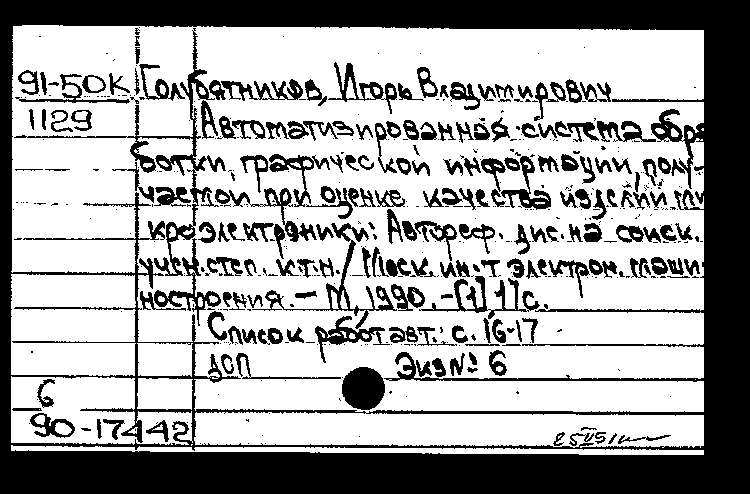 91-50К Голубятников, Игорь Владимирович
1129 Автоматизированная система обра
ботки графической информации, полу-
чаемой при оценке качества изделий ми
кроэлектроники: Автореф. дис. на соиск.
учен. степ. к.т.н. / Моск. ин-т электрон. маши
ностроения. – М, 1990. – [1] 17с.
Список работ авт.: с. 16-17
ДСП Экз № 6
6
90-17442